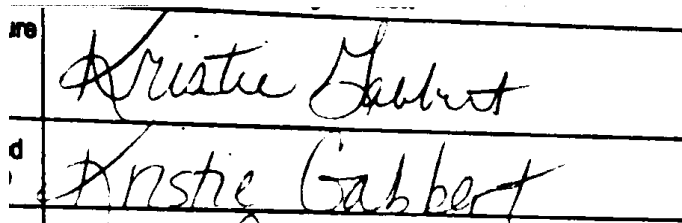 ure Kristie Gabbert
d Kristie Gabbert